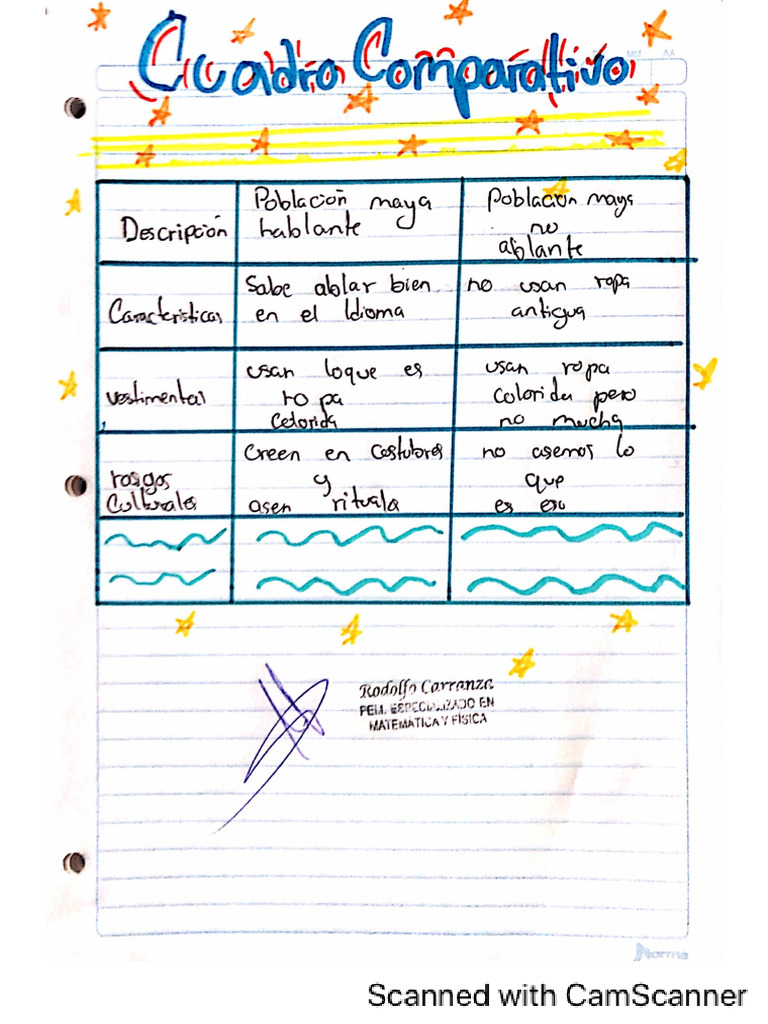 Cuadro Comparativo
Descripción
Población maya
hablante
Población maya
no
ablante
Características
Sabe ablar bien
en el Idioma
no usan ropa
antigua
vestimental
usan loque es
ropa
Colorida
usan ropa
colorida pero
no mucha
rasgos
Culturales
Creen en Costubres
y
asen rituala
no asemos lo
que
es eso
Rodolfo Carranza
PEM. ESPECIALIZADO EN
MATEMATICA Y FISICA
Norma
Scanned with CamScanner